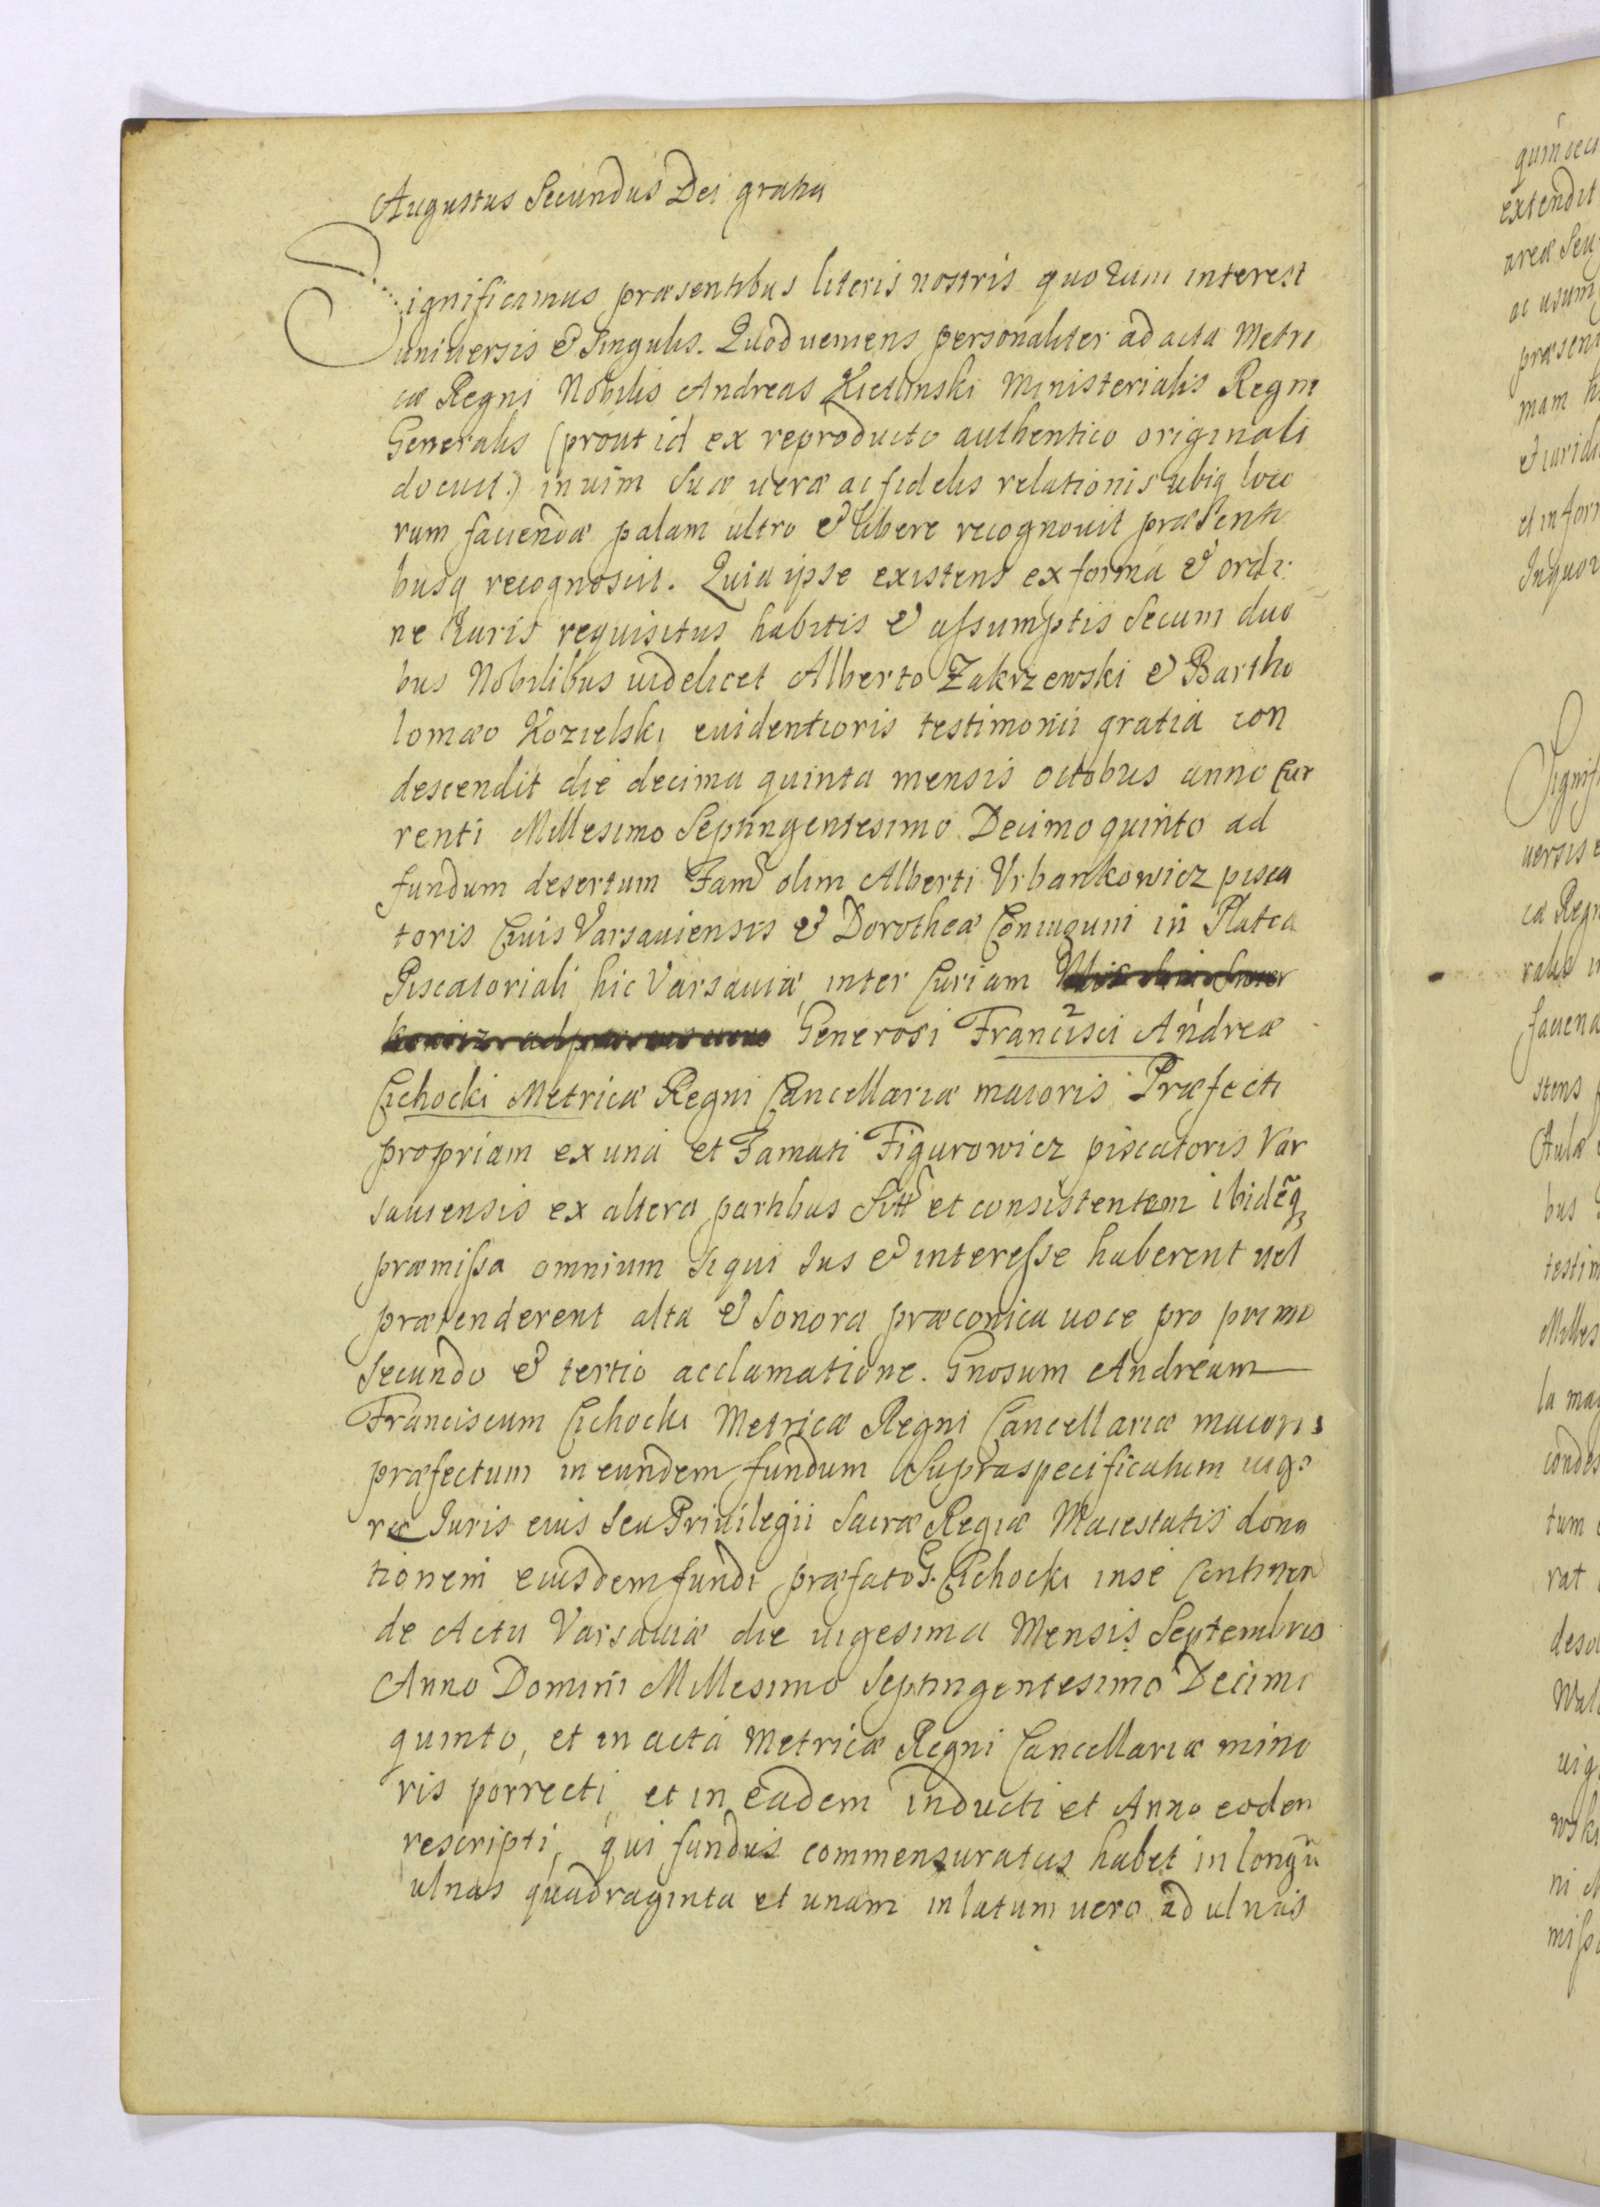 Augustus Secundus Dei gratia
Significamus præsentibus literis nostris quorum interest
universis & Singulis. Quod ueniens personaliter ad acta Metri
cæ Regni Nobilis Andreas Kietlinski Ministerialis Regni
Generalis (prout id ex reproducto authentico originali
docuit.) in uim Suæ ueræ ac fidelis relationis ubiq loco
rum faciendæ palam ultro & libere recognouit præsenti
busq recognoscit. Quia ipse existens ex forma & ordi
ne Iuris requisitus habitis & assumptis Secum duo
bus Nobilibus uidelicet Alberto Zakrzewski & Bartho
lomæo Kozielski euidentioris testimonii gratia con
descendit die decima quinta mensis octobris anno Cur
renti Millesimo Septingentesimo Decimo quinto ad
fundum desertum Fam olim Alberti Urbankowicz pisca
toris Ciuis Varsauiensis & Dorotheæ Coniugum in Platea
Piscatoriali hic Varsauiæ inter Curiam
Generosi Francisci 2 Andreæ
Cichocki Metricæ Regni Cancellariæ maioris Præfecti
propriam ex una et Famati Figurowicz piscatoris Var
sauiensis ex altera partibus Sitt et consistentem ibidẽq
præmissa omnium si qui Ius & interesse haberent uel
prætenderent alta & Sonora præconica uoce pro primo
Secundo & tertio acclamatione. Gnosum Andream
Franciscum Cichocki Metricæ Regni Cancellariæ maioris
præfectum in eundem fundum Supraspecificatum uigo
re Iuris eius Seu Priuilegii Sacræ Regiæ Maiestatis dona
tionem eiusdem fundi præfato G. Cichocki in se Continen
de Actu Varsauiæ die uigesima Mensis Septembris
Anno Domini Millesimo Septingentesimo Decimo
quinto, et in acta Metricæ Regni Cancellariæ mino
ris porrecti et in eadem inducti et Anno eodem
rescripti, qui fundus commensuratus habet in longũ
ulnas quadraginta et unam in latum uero ad ulnas